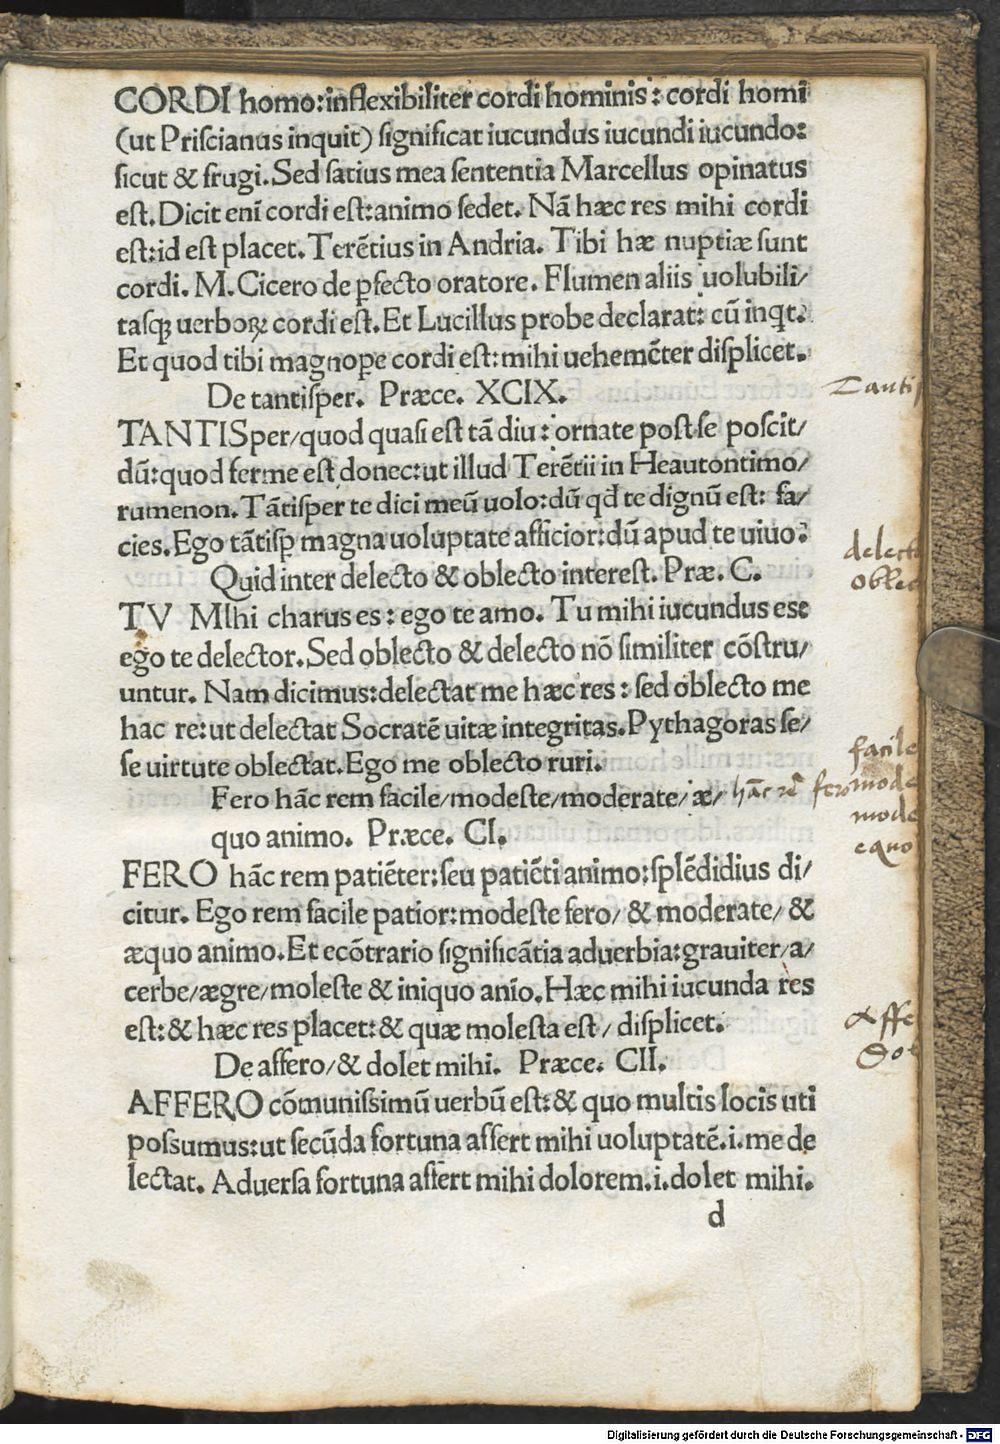 CORDI homo:inflexibiliter cordi hominis: cordi homi
(ut Priſcianus inquit) ſignificat iucundus iucundi iucundo:
ſicut & frugi. Sed ſatius mea ſententia Marcellus opinatus
eſt. Dicit enī cordi eſt: animo ſedet. Nā hæc res mihi cordi
eſt: id eſt placet. Terētius in Andria. Tibi hæ nuptiæ ſunt
cordi. M. Cicero de ꝑfecto oratore. Flumen aliis uolubili/
taſqꝫ uerboꝝ cordi eſt. Et Lucillus probe declarat: cū inqt.
Et quod tibi magnoꝑe cordi eſt: mihi uehemēter diſplicet.
De tantiſper. Præce. XCIX.
TANTISper/quod quaſi eſt tā diu: ornate poſt ſe poſcit/
dū: quod ferme eſt donec: ut illud Terētii in Heautontimo/
rumenon. Tātiſper te dici meū uolo: dū qd te dignū eſt: fa/
cies. Ego tātiſꝑ magna uoluptate afficior: dū apud te uiuo.
Quid inter delecto & oblecto intereſt. Præ. C.
TV MIhi charus es: ego te amo. Tu mihi iucundus es:
ego te delector. Sed oblecto & delecto nō ſimiliter cōſtru/
untur. Nam dicimus: delectat me hæc res: ſed oblecto me
hac re: ut delectat Socratē uitæ integritas. Pythagoras ſe/
ſe uirtute oblectat. Ego me oblecto ruri.
Fero hāc rem facile/modeſte/moderate/æ/
quo animo. Præce. CI.
FERO hāc rem patiēter: ſeu patiēti animo: ſplēdidius di/
citur. Ego rem facile patior: modeſte fero/ & moderate/ &
æquo animo. Et ecōtrario ſignificātia aduerbia: grauiter/a/
cerbe/ægre/moleſte & iniquo anīo. Hæc mihi iucunda res
eſt: & hæc res placet: & quæ moleſta eſt/ diſplicet.
De affero/& dolet mihi. Præce. CII.
AFFERO cōmuniſſimū uerbū eſt: & quo multis locis uti
poſſumus: ut ſecūda fortuna affert mihi uoluptatē. i. me de
lectat. Aduerſa fortuna affert mihi dolorem. i. dolet mihi.
d
Tantiſ
delect
oblec
facile
hāc rē fero mode
mode
equo
Affe
Dol
Digitalisierung gefördert durch die Deutsche Forschungsgemeinschaft - DFG